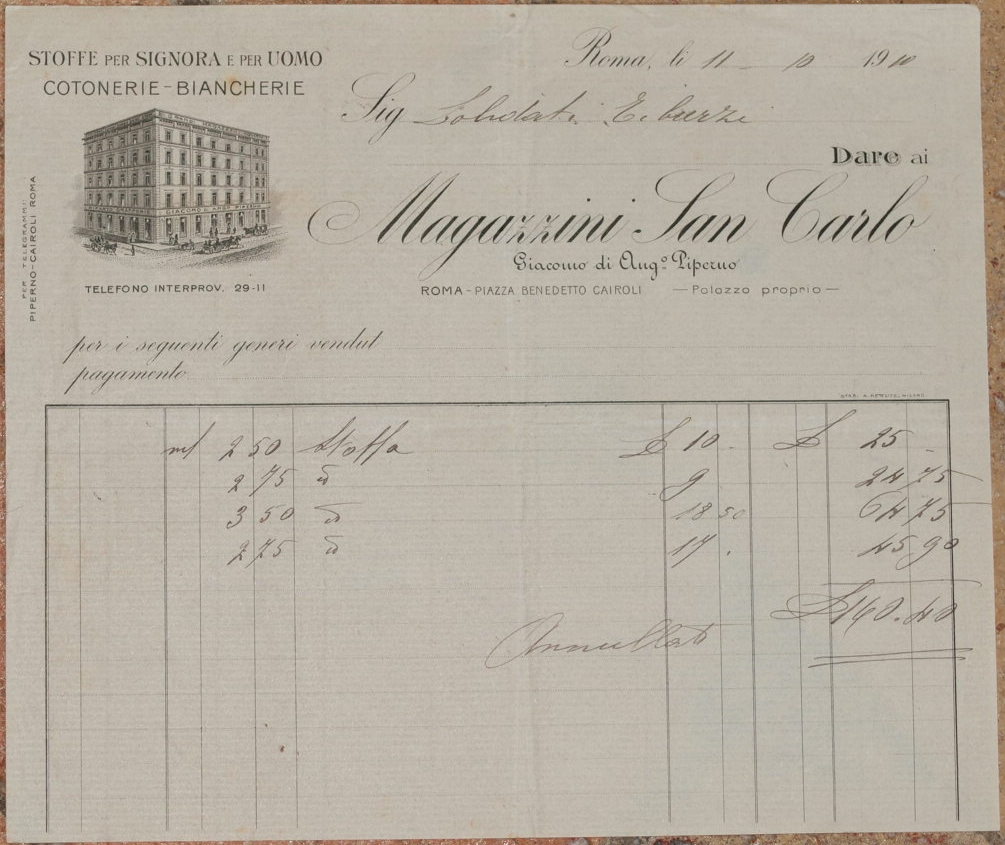 STOFFE PER SIGNORA E PER UOMO
COTONERIE-BIANCHERIE
PER TELEGRAMMI:
PIPERNO-CAIROLI ROMA
TELEFONO INTERPROV. 29-11
Roma, li 11 - 10 1910
Sig
Dare ai
Magazzini San Carlo
Giacomo di Ang.º Piperno
ROMA - PIAZZA BENEDETTO CAIROLI — Palazzo proprio —
per i seguenti generi venduti
pagamento
mt 2 50 Stoffa £ 10 - £ 25 -
2 75 id 9 24 75
3 50 id 18 50 64 75
2 75 id 17 . 45 90
£ 160.40
Annullato